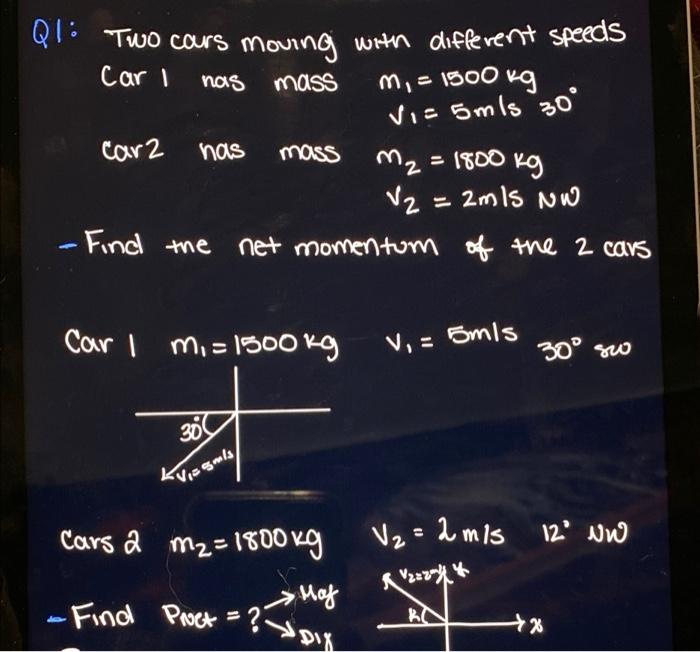 Q1: Two cars moving with different speeds
Car 1 has mass m₁ = 1500 kg
V₁ = 5m/s 30°
Car 2 has mass m₂ = 1800 kg
V₂ = 2m/s NW
- Find the net momentum of the 2 cars
Car 1 m₁ = 1500 kg V₁ = 5m/s 30° SW
30°
V₁ = 5m/s
Cars 2 m₂ = 1800 kg V₂ = 2m/s 12° NW
V₂=2m/s
x
- Find Pnet = ? → Mag
→ Dir